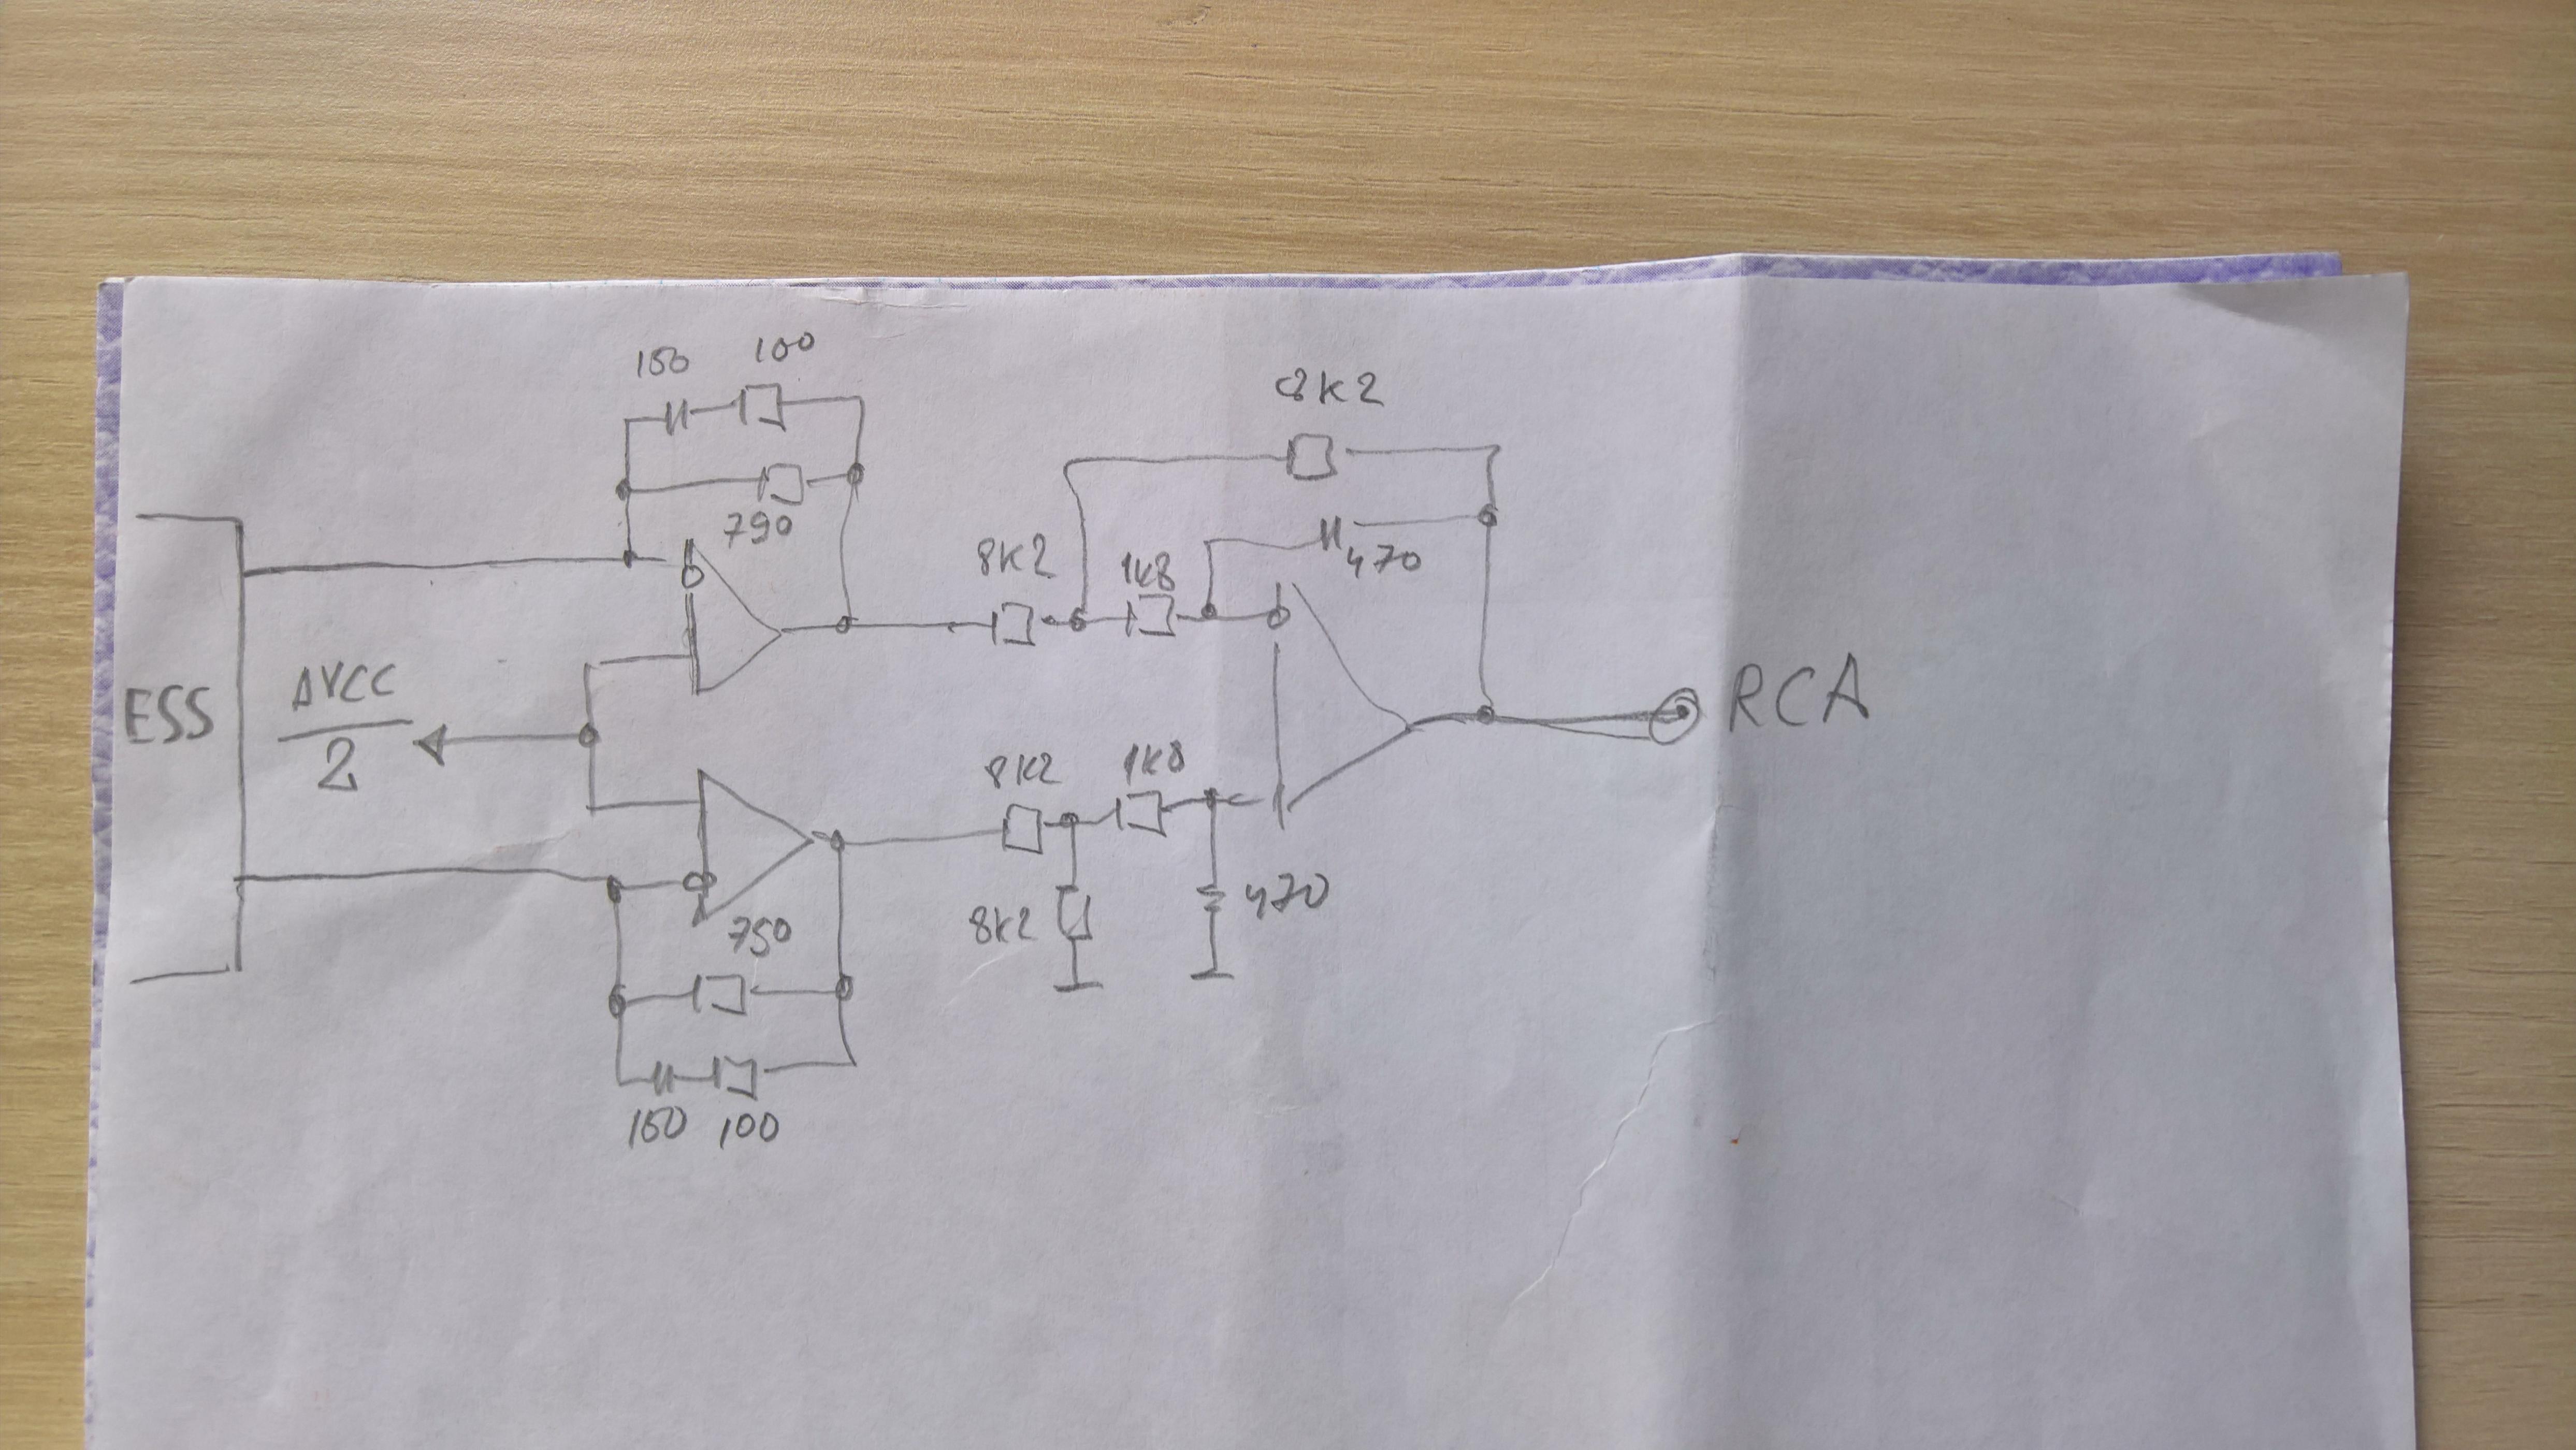 150 100
790
8K2
470
8K2 1K8
ESS
AVCC
2
RCA
8K2 1K8
8K2 470
750
150 100